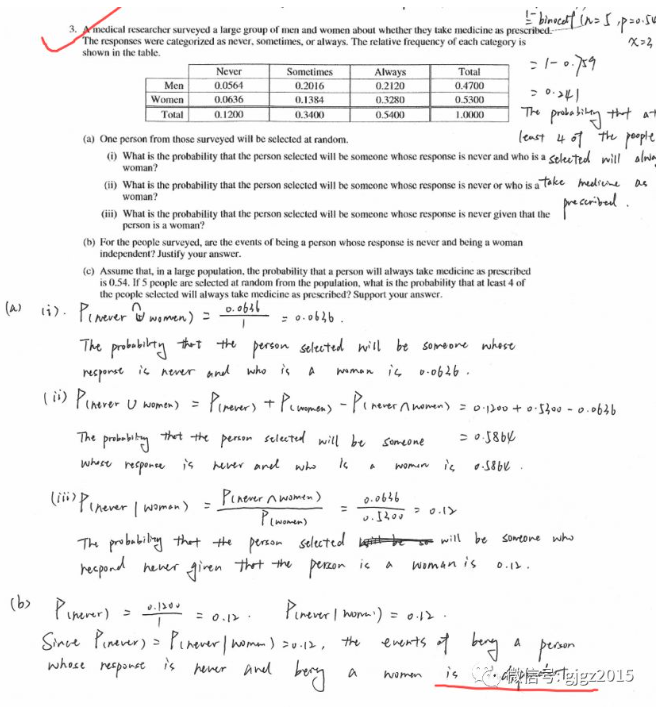 3. A medical researcher surveyed a large group of men and women about whether they take medicine as prescribed.
The responses were categorized as never, sometimes, or always. The relative frequency of each category is
shown in the table.
Never Sometimes Always Total
Men 0.0564 0.2016 0.2120 0.4700
Women 0.0636 0.1384 0.3280 0.5300
Total 0.1200 0.3400 0.5400 1.0000
(a) One person from those surveyed will be selected at random.
(i) What is the probability that the person selected will be someone whose response is never and who is a
woman?
(ii) What is the probability that the person selected will be someone whose response is never or who is a
woman?
(iii) What is the probability that the person selected will be someone whose response is never given that the
person is a woman?
(b) For the people surveyed, are the events of being a person whose response is never and being a woman
independent? Justify your answer.
(c) Assume that, in a large population, the probability that a person will always take medicine as prescribed
is 0.54. If 5 people are selected at random from the population, what is the probability that at least 4 of
the people selected will always take medicine as prescribed? Support your answer.
= 1 - 0.759
= 0.241
The probability that at
least 4 of the people
selected will
take medicine as
prescribed.
(a) (i). P(never ∩ women) = 0.0636/1 = 0.0636.
The probability that the person selected will be someone whose
response is never and who is a woman is 0.0636.
(ii) P(never ∪ women) = P(never) + P(women) - P(never ∩ women) = 0.1200 + 0.5300 - 0.0636
= 0.5864
The probability that the person selected will be someone
whose response is never and who is a women is 0.5864.
(iii) P(never | woman) = P(never ∩ women)/P(women) = 0.0636/0.5300 = 0.12
The probability that the person selected will be someone who
respond never given that the person is a woman is 0.12.
(b) P(never) = 0.1200/1 = 0.12. P(never | women) = 0.12.
Since P(never) = P(never | women) = 0.12, the events of being a person
whose response is never and being a women is
微信号: gjgz2015